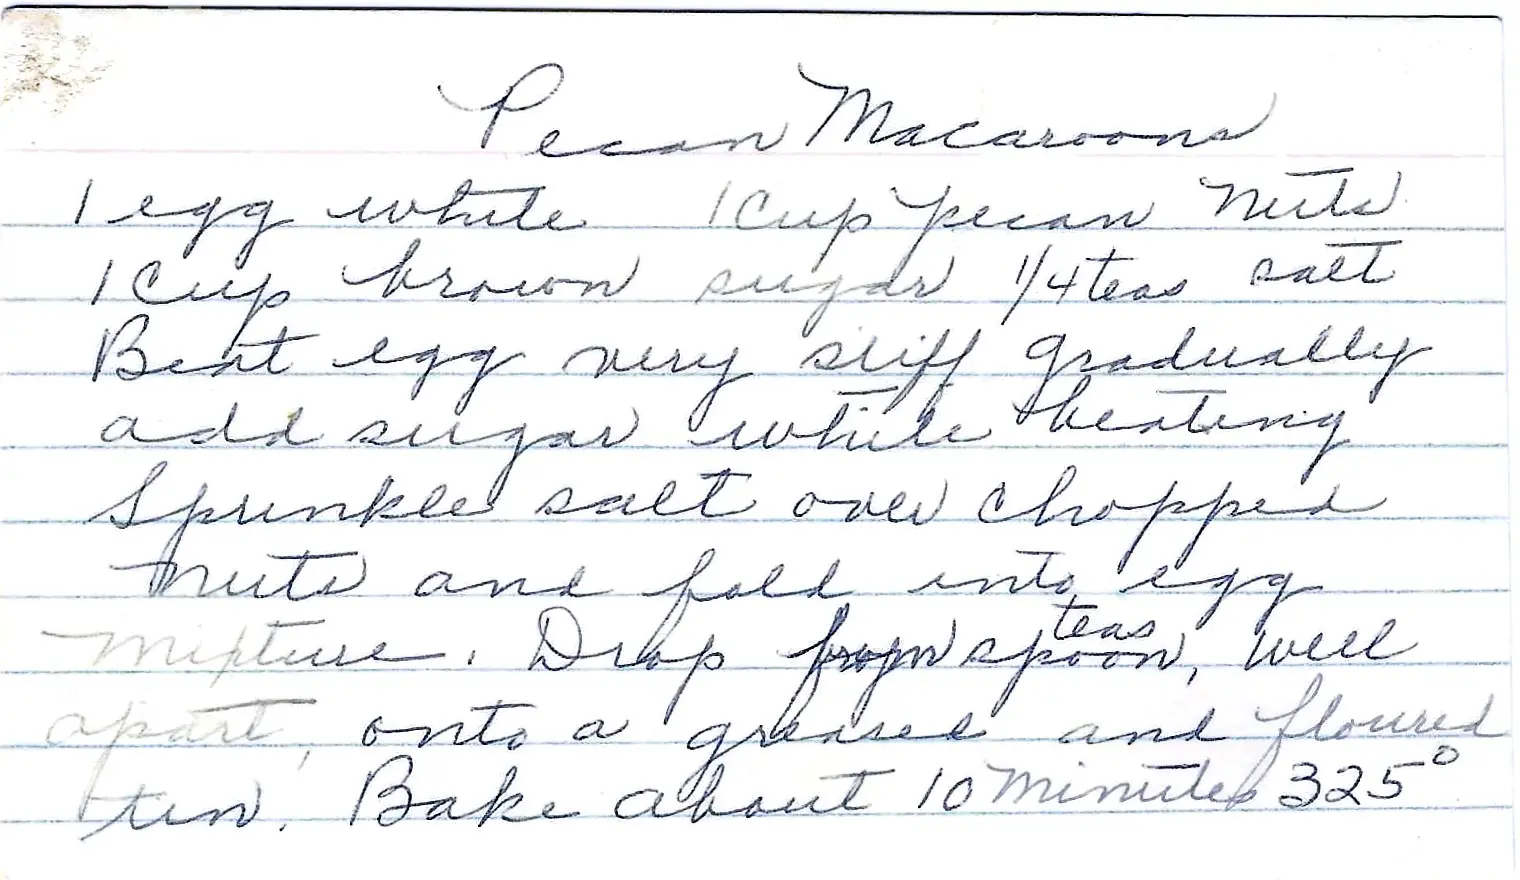 Pecan Macaroons
1 egg white 1 Cup pecan nuts
1 Cup brown sugar 1/4 teas salt
Beat egg very stiff gradually
add sugar while beating
Sprinkle salt over chopped
nuts and fold into egg
mixture. Drop from teas spoon, well
apart, onto a greased and floured
tin. Bake about 10 minutes 325°